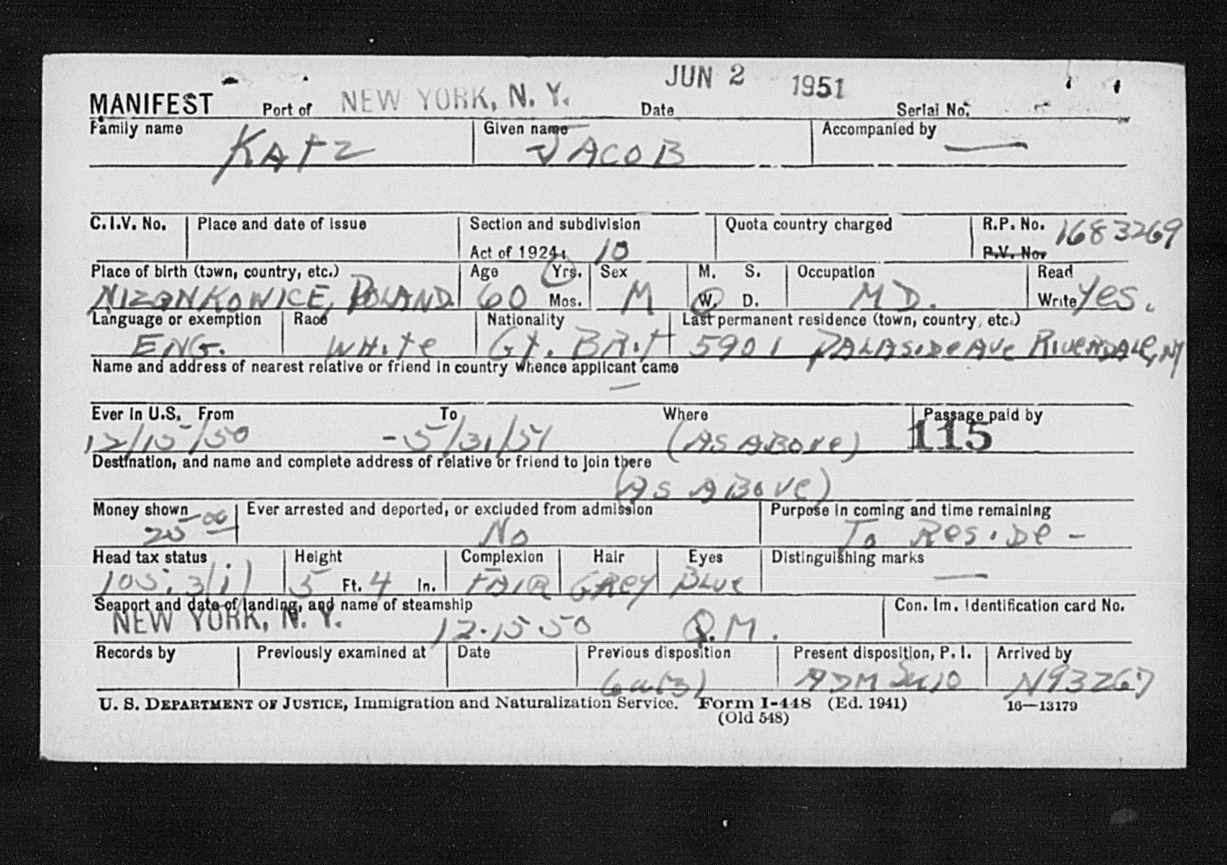 JUN 2 1951
MANIFEST Port of NEW YORK, N. Y. Date Serial No.
Family name KATZ Given name JACOB Accompanied by —
C.I.V. No. Place and date of issue Section and subdivision Quota country charged R.P. No. 1683269
Act of 1924: 10 P.V. No.
Place of birth (town, country, etc.) Age Yrs. Sex M. S. Occupation Read
NIZANKOWICE, POLAND. 60 Mos. M W. D. MD. Write Yes.
Language or exemption Race Nationality Last permanent residence (town, country, etc.)
ENG. WHITE Gt. BRIT 5901 PALASIDE AVE RIVERDALE, NY
Name and address of nearest relative or friend in country whence applicant came
—
Ever in U.S. From To Where Passage paid by
12/15/50 - 5/31/51 (AS ABOVE) 115
Destination, and name and complete address of relative or friend to join there
(AS ABOVE)
Money shown Ever arrested and deported, or excluded from admission Purpose in coming and time remaining
25 00 No To Reside -
Head tax status Height Complexion Hair Eyes Distinguishing marks
105.3(1) 5 Ft. 4 In. FAIR GREY BLUE —
Seaport and date of landing, and name of steamship Con. Im. Identification card No.
NEW YORK, N. Y. 12.15 50 Q.M.
Records by Previously examined at Date Previous disposition Present disposition, P. I. Arrived by
ADM N93267
U. S. DEPARTMENT OF JUSTICE, Immigration and Naturalization Service. Form I-448 (Ed. 1941) 16—13179
(Old 548)